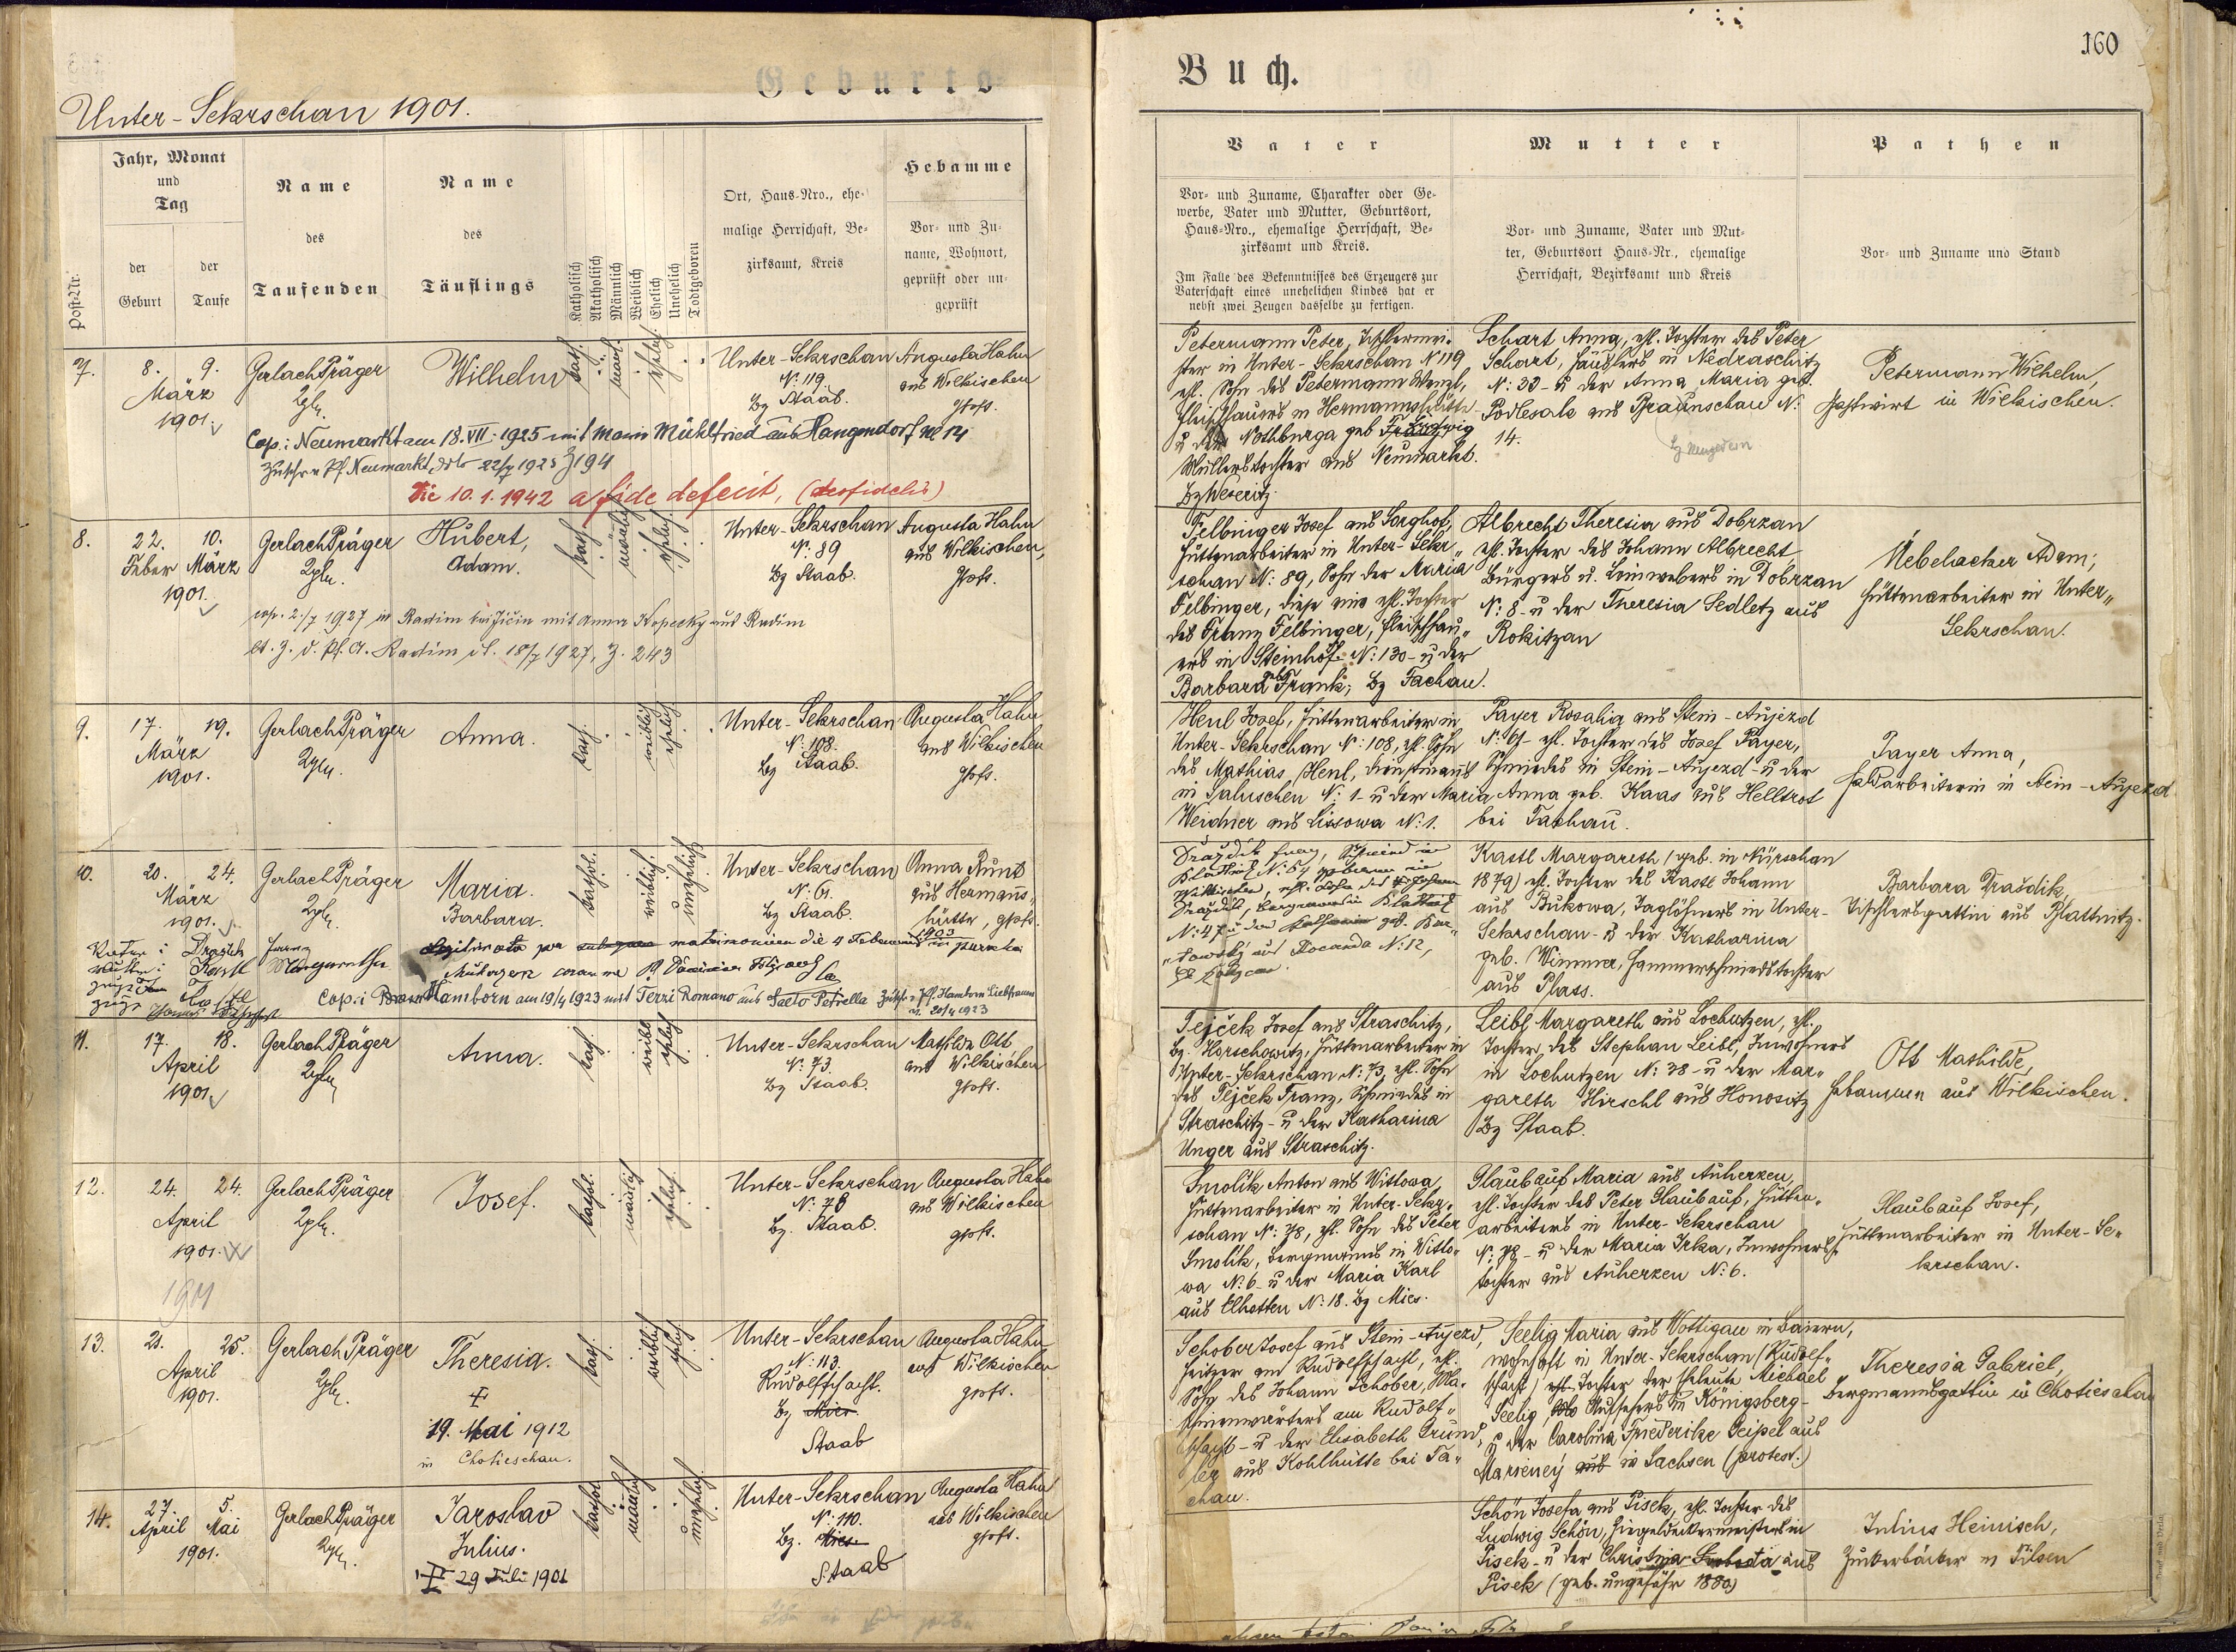 Geburts-
Unter-Sekrschan 1901.
Jahr, Monat
und
Tag
Name
des
Taufenden
Name
des
Täuflings
Post-Nr.
der
Geburt
der
Taufe
Katholisch
Akatholisch
Männlich
Weiblich
Ehelich
Unehelich
Todtgeboren
Ort, Haus-Nro., ehe-
malige Herrschaft, Be-
zirksamt, Kreis
Hebamme
Vor- und Zu-
name, Wohnort,
geprüft oder un-
geprüft
7. 8. 9. Gerlach Präger Wilhelm kath. männl. ehelich Unter-Sekrschan Augusta Hahn
März N: 119. aus Wilkischen
1901. Bz Staab. gepft.
Cop: Neumarkt am 18. VII. 1925 mit Marie Mühlfried aus Hangendorf No 14
Neumarkt, ddto 22/7 1925 Z 194
Die 10. 1. 1942 a fide defecit,
8. 22. 10. Gerlach Präger Hubert, kath. männlich ehelich Unter-Sekrschan Augusta Hahn
Feber März Adam. N: 89 aus Wilkischen,
1901. Bz Staab. gepft.
cop. 2./7 1927 in Radim bei Jičin mit Anna Kopecky aus Radim
lt. Z. d. Pf. A. Radim d. 18/7 1927, Z. 243
9. 17. 19. Gerlach Präger Anna. kath. weiblich ehelich Unter-Sekrschan Augusta Hahn
März N: 108. aus Wilkischen
1901. Bz Staab. gepft.
10. 20. 24. Gerlach Präger Maria. kathol. weiblich. unehelich Unter-Sekrschan Anna Kunt
März Barbara. N: 61. aus Hermanns-
1901. Bz Staab. hütte, gepft.
Legitimata per matrimonium die 4 Februar 1903 in
Cop: Hamborn am 19/4 1923 mit Terzi Romano aus Saeto Petrella Hamborn Liebfrauen
v. 20/4 1923
11. 17. 18. Gerlach Präger Anna. kath. weibl. ehelich Unter-Sekrschan Mathilde Ott
April N: 73. aus Wilkischen
1901. Bz Staab. gepft.
12. 24. 24. Gerlach Präger Josef. kathol. männlich ehelich. Unter-Sekrschan Augusta Hahn
April N: 78 aus Wilkischen
1901. Bz. Staab. gepft.
1901
13. 21. 25. Gerlach Präger Theresia. kath. weiblich ehelich. Unter-Sekrschan Augusta Hahn
April N: 113. aus Wilkischen
1901. Rudolfschacht. gepft.
19. Mai 1912 Bz Mies.
in Chotieschau. Staab
14. 27. 5. Gerlach Präger Jaroslav kathol. männlich unehelich Unter-Sekrschan Augusta Hahn
April Mai Julius. N: 110. aus Wilkischen
1901. Bz. Mies gepft.
29 Juli 1901 Staab
Buch.
160
Vater
Mutter
Pathen
Vor- und Zuname, Charakter oder Ge-
werbe, Vater und Mutter, Geburtsort,
Haus-Nro., ehemalige Herrschaft, Be-
zirksamt und Kreis.
Im Falle des Bekenntnisses des Erzeugers zur
Vaterschaft eines unehelichen Kindes hat er
nebst zwei Zeugen dasselbe zu fertigen.
Vor- und Zuname, Vater und Mut-
ter, Geburtsort Haus-Nr., ehemalige
Herrschaft, Bezirksamt und Kreis
Vor- und Zuname und Stand
Petermann Peter, Tischlermei-
ster in Unter-Sekrschan N 119
ehl. Sohn des Petermann Wenzl,
Fleischhauers in Hermannshütte
u. der Nothburga geb.
Müllerstochter aus Neumarkt.
Bz Weseritz.
Schart Anna, ehl. Tochter des Peter
Schart, Häuslers in Nedraschitz
N: 23 - u der Anna Maria geb.
Podlesak aus Braunschau N:
14.
Petermann Wilhelm,
Gastwirt in Wilkischen.
Felbinger Josef aus Sorghof,
Hüttenarbeiter in Unter-Sekr-
schan N: 89, Sohn der Maria
Felbinger, diese eine ehl. Tochter
des Franz Felbinger, Fleischhau-
ers in Steinhof N: 130 - u der
Barbara geb. Frank; Bz Tachau.
Albrecht Theresia aus Dobrzan
ehl. Tochter des Johann Albrecht
Bürgers u. Leinwebers in Dobrzan
N: 8 - u der Theresia Sedletz aus
Rokitzan
Uebelacker Adam;
Hüttenarbeiter in Unter-
Sekrschan.
Henl Josef, Hüttenarbeiter in
Unter-Sekrschan N: 108, ehl. Sohn
des Mathias Henl, Dienstmanns
in Saluschen N: 1 - u der Maria
Weidner aus Lissowa N: 1.
Payer Rosalia aus Stein-Aujezd
N: 61 - ehl. Tochter des Josef Payer,
Schmiedes in Stein-Aujezd - u der
Anna geb. Haas aus Helltrot
bei Tachau.
Payer Anna,
Feldarbeiterin in Stein-Aujezd
Kastl Margareth (geb. in Nürschan
1879) ehl. Tochter des Kastl Johann
aus Bukowa, Taglöhners in Unter-
Sekrschan - u der Katharina
geb. Wimmer, Hammerschmiedstochter
aus Plass.
Barbara Drašdik,
Tischlersgattin aus Blattnitz.
Tejček Josef aus Straschitz,
Bz. Horschowitz, Hüttenarbeiter in
Unter-Sekrschan N: 73, ehl. Sohn
des Tejček Franz, Schmiedes in
Straschitz - u der Katharina
Unger aus Straschitz.
Leibl Margareth aus Lochutzen, ehl.
Tochter des Stephan Leibl, Inwohners
in Lochutzen N: 28 - u der Mar-
gareth Hirschl aus Honositz
Bz Staab.
Ott Mathilde,
Hebamme aus Wilkischen.
Smolik Anton aus Wittowa
Hüttenarbeiter in Unter-Sekr-
schan N: 78, ehl. Sohn des Peter
Smolik, Bergmanns in Witto-
wa N: 6 - u der Maria Karl
aus Elhotten N: 18. Bz Mies.
Glaubauf Maria aus Auherzen,
ehl. Tochter des Peter Glaubauf, Hütten-
arbeiters in Unter-Sekrschan
N: 78 - u der Maria Irka, Inwohners-
tochter aus Auherzen N: 6.
Glaubauf Josef,
Hüttenarbeiter in Unter-Se-
krschan.
Schober Josef aus Stein-Aujezd,
Heitzer am Rudolfschacht, ehl.
Sohn des Johann Schober, Ma-
schinenwärters am Rudolf-
schacht - u der Elisabeth Grund-
ler aus Kohlhütte bei Ta-
chau.
Seelig Maria aus Wottigau in Baiern,
wohnhaft in Unter-Sekrschan (Rudolf-
schacht) ehl. Tochter der Eheleute Michael
Seelig, Aufsehers in Königsberg -
u der Carolina Friederike Geipel aus
Marieney aus in Sachsen (protest.)
Theresia Gabriel,
Bergmannsgattin in Chotieschau
Schön Josefa aus Pisek, ehl. Tochter des
Ludwig Schön, Ziegeldeckermeisters in
Pisek - u der Christina Svoboda aus
Pisek (geb. ungefähr 1880)
Julius Heinisch,
Zuckerbäcker in Pilsen